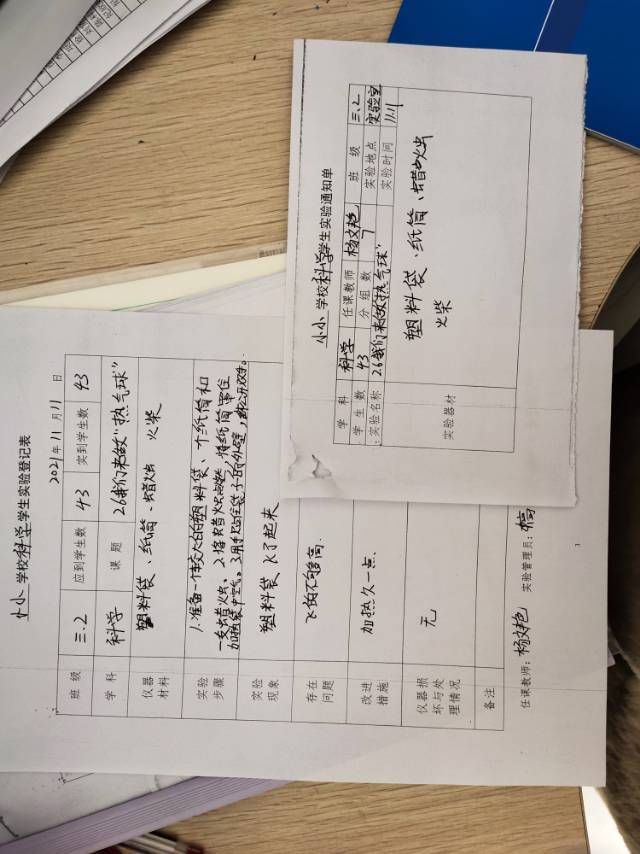 小小 学校科学学生实验登记表
2021年11月11日
班级 三.2 应到学生数 43 实到学生数 43
学科 科学 课题 2.6我们来做"热气球"
仪器材料 塑料袋、纸筒、蜡烛 火柴
实验步骤 1.准备一个较大的塑料袋、
一支蜡烛、2.将蜡烛点燃,
加热袋中空气。3.用
实验现象 塑料袋飞了起来
存在问题 飞的不够高.
改进措施 加热久一点.
仪器损坏与处理情况 无
备注
任课教师: 杨文艳 实验管理员:
小小 学校科学学生实验通知单
学科 科学 任课教师 杨文艳 班级 三.2
学生数 43 分组数 7 实验地点 实验室
实验名称 2.6我们来做"热气球" 实验时间 11.11
实验器材 塑料袋、纸筒、蜡烛
火柴